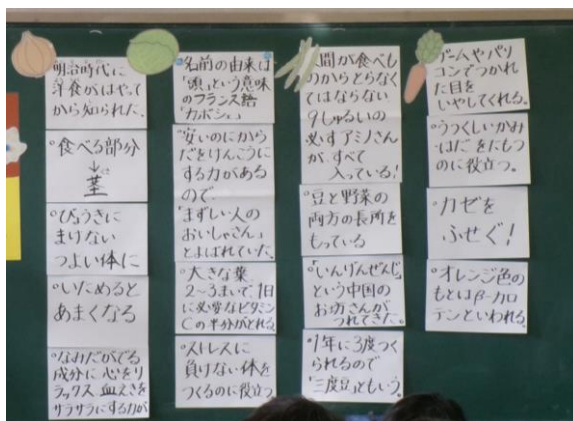 明治時代に
洋食がはやって
から知られた。
食べる部分
↓
茎
びょうきに
まけない
つよい体に
いためると
あまくなる
なみだがでる
成分に 心をリ
ラックス 血えきを
サラサラにする力が
名前の由来は
「頭」という意味
のフランス語
「カボシュ」
安いのにから
だをけんこうに
する力がある
ので、
「まずしい人の
おいしゃさん」
とよばれていた。
大きな葉、
2～3まいで、1日
に必要なビタミン
Cの半分がとれる。
ストレスに
負けない体を
つくるのに役立つ
間が食べも
のからとらなく
てはならない
9しゅるいの
必すアミノさん
が、すべて
入っている!
豆と野菜の
両方の長所を
もっている
「いんげんぜんじ」
という中国の
お坊さんが
つれてきた。
1年に3度つく
られるので
「三度豆」ともいう。
ゲームやパソ
コンでつかれ
た目を
いやしてくれる。
うつくしいかみ
・はだをたもつ
のに役立つ。
カゼを
ふせぐ!
オレンジ色の
もとはβ-カロ
テンといわれる。